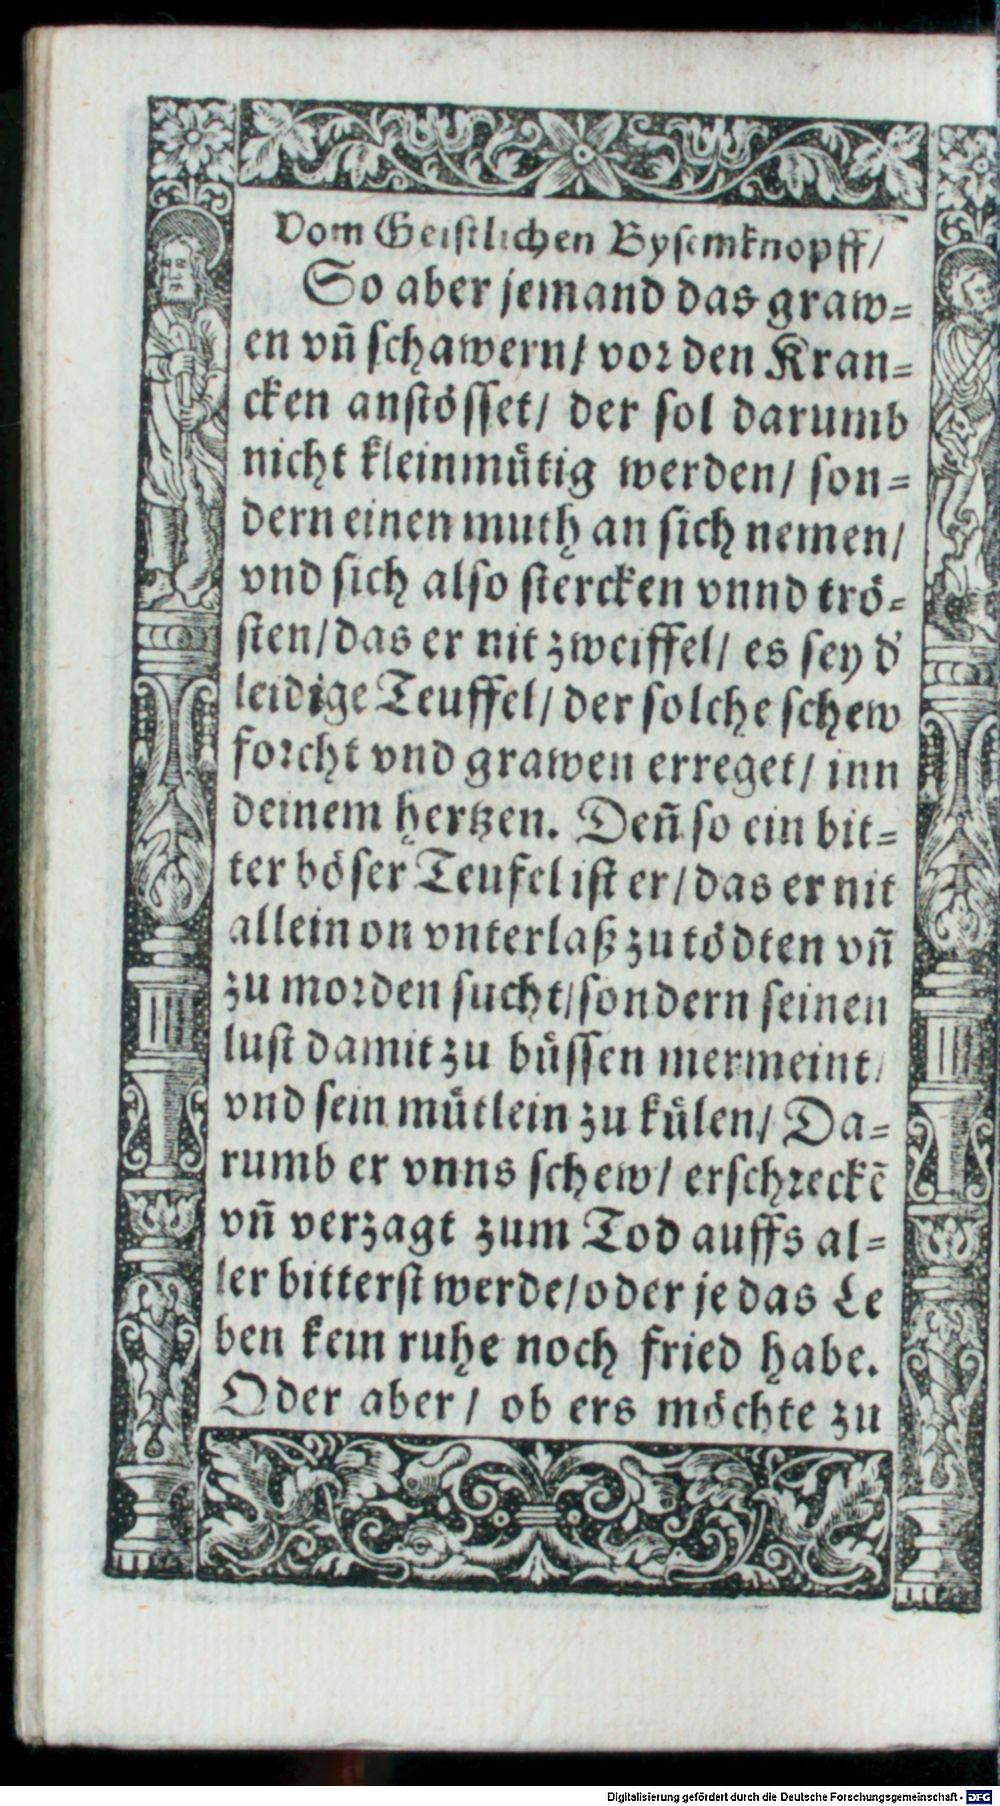 Vom Geistlichen Bysemknopff/
So aber jemand das graw=
en vn̄ schawern/ vor den Kran=
cken anstösset/ der sol darumb
nicht kleinmuͤtig werden/ son=
dern einen muth an sich nemen/
vnd sich also stercken vnnd trö=
sten/ das er nit zweiffel/ es sey d'
leidige Teuffel/ der solche schew
forcht vnd grawen erreget/ inn
deinem hertzen. Den̄ so ein bit=
ter böser Teufel ist er/ das er nit
allein on vnterlaß zu tödten vn̄
zu morden sucht/ sondern seinen
lust damit zu buͤssen mermeint/
vnd sein muͤtlein zu kuͤlen/ Da=
rumb er vnns schew/ erschreckē
vn̄ verzagt zum Tod auffs al=
ler bitterst werde/ oder je das Le
ben kein ruhe noch fried habe.
Oder aber/ ob ers möchte zu
Digitalisierung gefördert durch die Deutsche Forschungsgemeinschaft - DFG